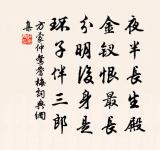 夜半長生殿
金釵恨最長
分明後身是
環子伴三郎
方蒙仲鴛鴦梅詞典網
集